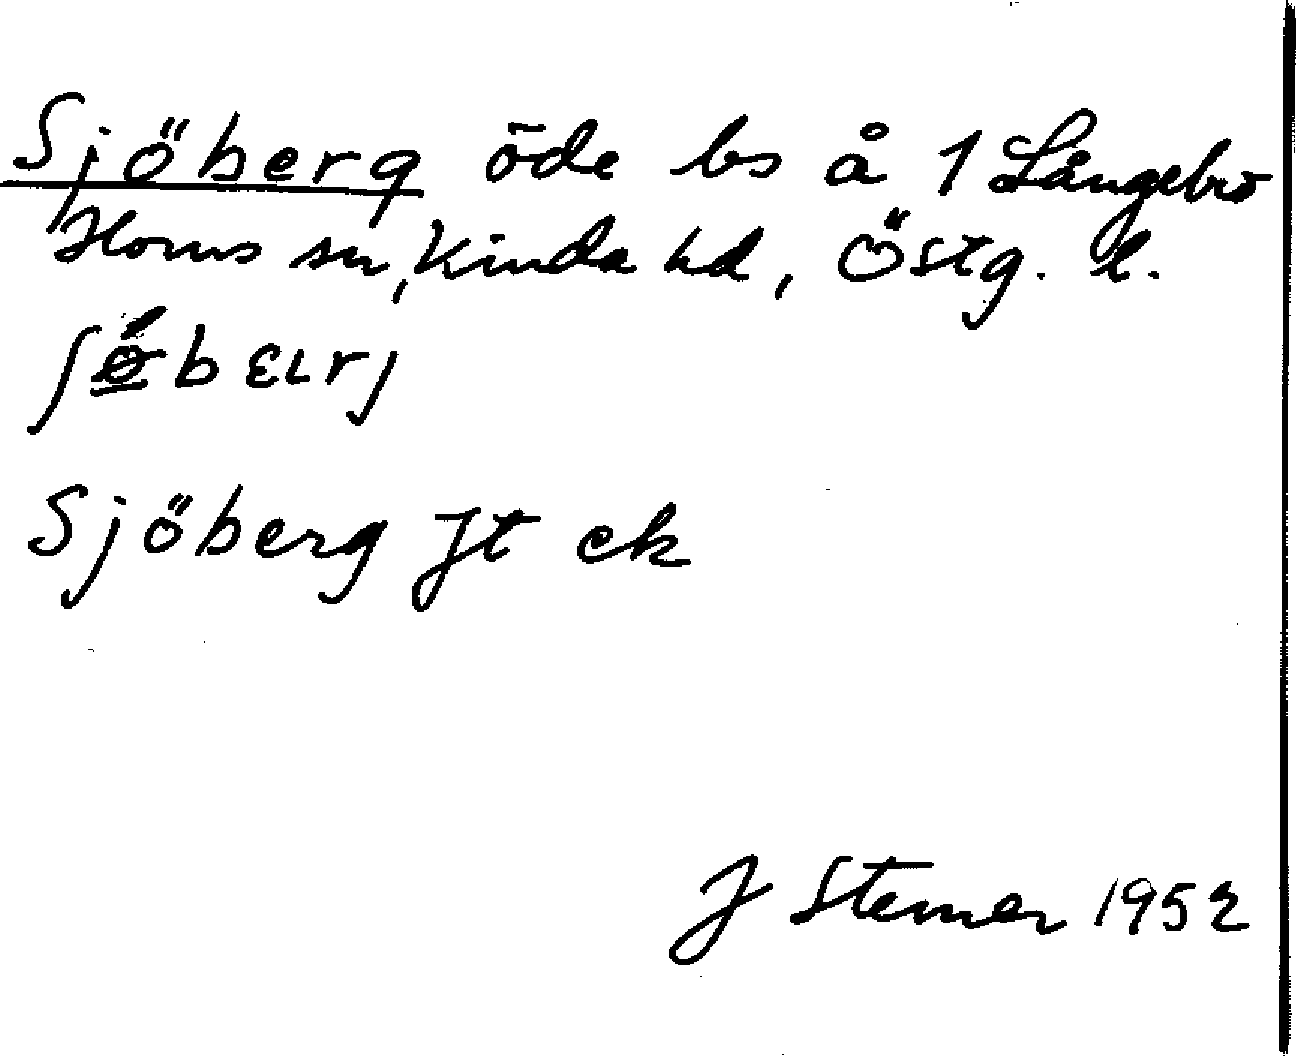 Sjöberg öde bs å 1 Långebro
Horns sn, Kinda hd, Östg. l.
ʃøbɛɩrj
Sjöberg Jt ek
J Stemer 1952